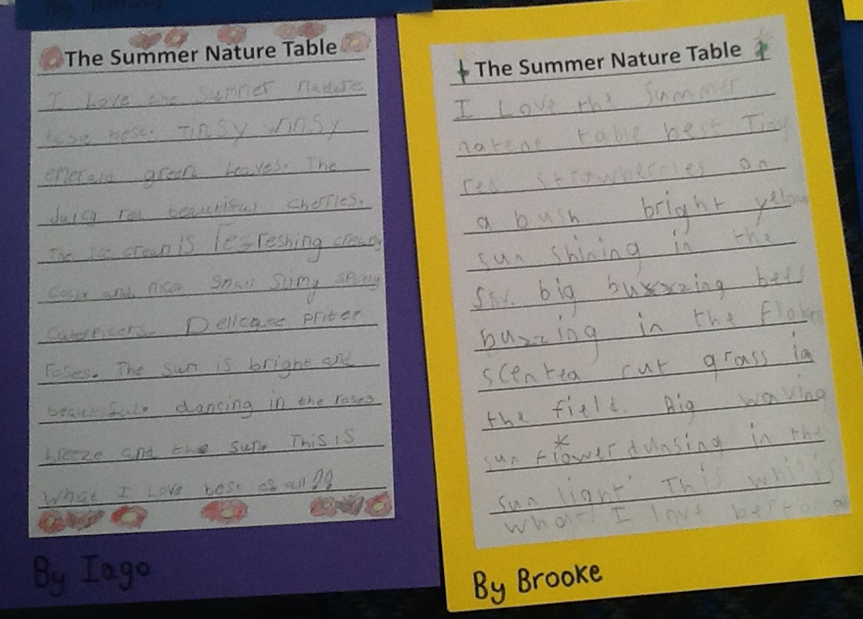 The Summer Nature Table
I Love the Summer nature
best. Tinsy Winsy
emerald green Leaves. The
Juicy red beautiful cherries.
The Ice cream is refreshing creamy
and nice Small Slimy
Delicate
roses. The Sun is bright and
dancing in the roses
breeze and the sun. This is
What I Love best of all!!
By Iago
The Summer Nature Table
I Love the Summer
nature table best Tiny
red strawberries on
a bush bright yellow
sun shining in the
sky. big buxxzing bees
buzzing in the flower
scented cut grass in
the field. Big waving
sun flower dunsing in the
sun light This
what I love
By Brooke